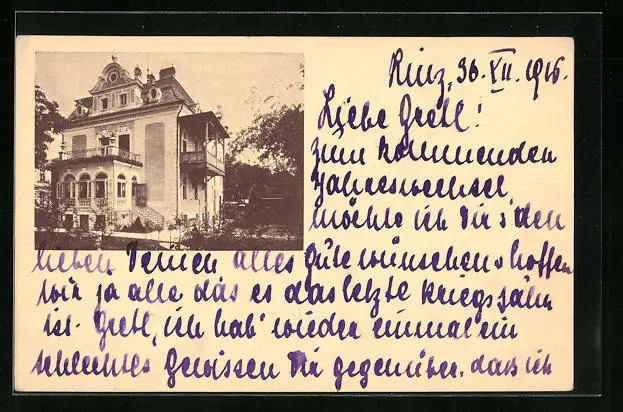 Linz, 30. XII. 1916.
Liebe Gretl!
Zum kommenden
Jahreswechsel,
möchte ich Dir u. den
lieben Deinen alles Gute wünschen u. hoffen
wir ja alle das es das letzte Kriegsjahr
ist. Gretl, ich hab' wieder einmal ein
schlechtes Gewissen Dir gegenüber, dass ich